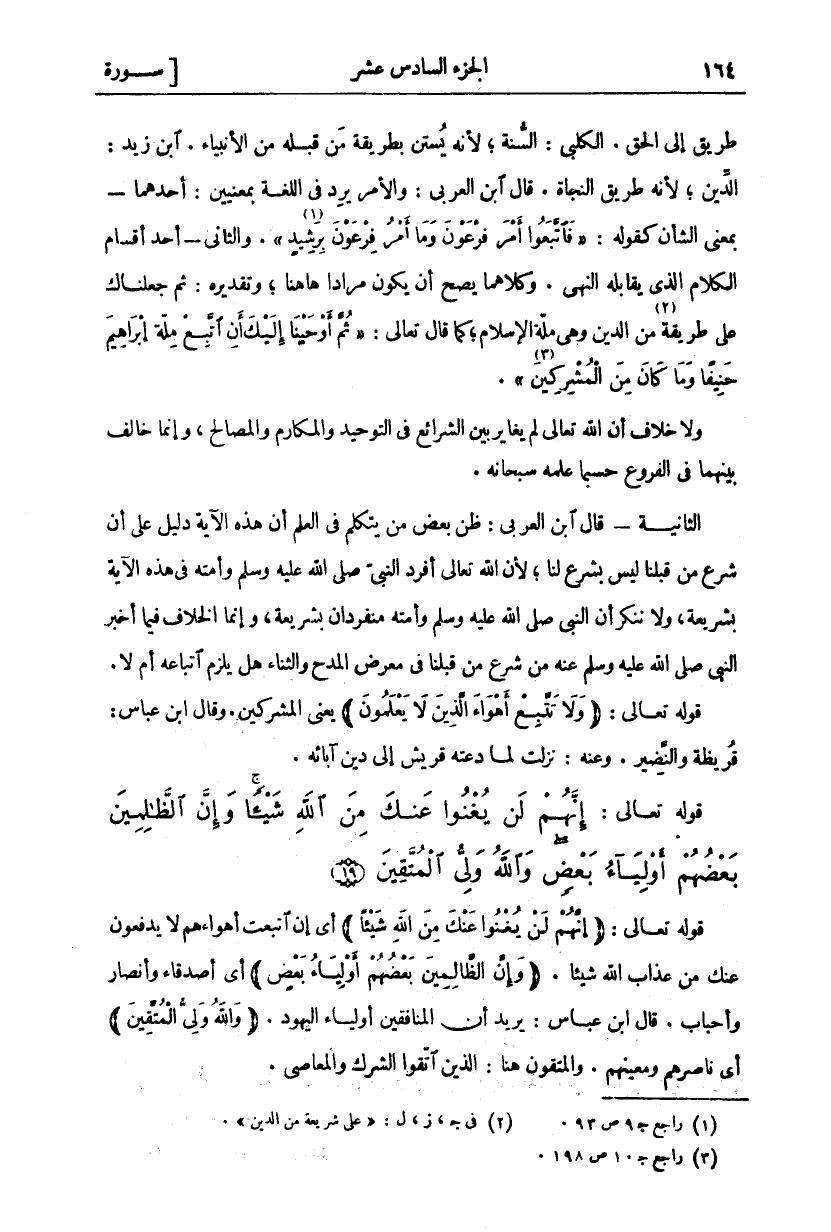 ١٦٤ الجزء السادس عشر [ سورة
طريق إلى الحق . الكلبي : السُّنة ؛ لأنه يُستن بطريقة مَن قبله من الأنبياء . ٱبن زيد :
الدِّين ؛ لأنه طريق النجاة . قال ٱبن العربى : والأمر يرِد فى اللغة بمعنيين : أحدهما —
بمعنى الشأن كقوله : « فَٱتَّبَعُوا أَمْرَ فِرْعَوْنَ وَمَا أَمْرُ فِرْعَوْنَ بِرَشِيدٍ (١) » . والثانى — أحد أقسام
الكلام الذى يقابله النهى . وكلاهما يصح أن يكون مرادا هاهنا ؛ وتقديره : ثم جعلناك
على طريقة (٢) من الدين وهى ملّة الإسلام ؛ كما قال تعالى : « ثُمَّ أَوْحَيْنَا إِلَيْكَ أَنِ ٱتَّبِعْ مِلَّةَ إِبْرَاهِيمَ
حَنِيفًا وَمَا كَانَ مِنَ الْمُشْرِكِينَ (٣) » .
ولا خلاف أن الله تعالى لم يغاير بين الشرائع فى التوحيد والمكارم والمصالح ، وإنما خالف
بينهما فى الفروع حسبما علمه سبحانه .
الثانيـة — قال ٱبن العربى : ظن بعض من يتكلم فى العلم أن هذه الآية دليل على أن
شرع من قبلنا ليس بشرع لنا ؛ لأن الله تعالى أفرد النبىّ صلى الله عليه وسلم وأمته فى هذه الآية
بشريعة ، ولا ننكر أن النبى صلى الله عليه وسلم وأمته منفردان بشريعة ، وإنما الخلاف فيما أخبر
النبى صلى الله عليه وسلم عنه من شرع من قبلنا فى معرض المدح والثناء هل يلزم ٱتباعه أم لا .
قوله تعـالى : ﴿ وَلَا تَتَّبِعْ أَهْوَاءَ الَّذِينَ لَا يَعْلَمُونَ ﴾ يعنى المشركين . وقال ابن عباس :
قُريظة والنَّضير . وعنه : نزلت لمـا دعته قريش إلى دين آبائه .
قوله تعـالى : إِنَّهُمْ لَن يُغْنُوا عَنكَ مِنَ ٱللَّهِ شَيْـًٔا ۚ وَإِنَّ ٱلظَّـٰلِمِينَ
بَعْضُهُمْ أَوْلِيَآءُ بَعْضٍ ۖ وَٱللَّهُ وَلِىُّ ٱلْمُتَّقِينَ ﴿١٩﴾
قوله تعـالى : ﴿ إِنَّهُمْ لَنْ يُغْنُوا عَنْكَ مِنَ اللَّهِ شَيْئًا ﴾ أى إن ٱتبعت أهواءهم لا يدفعون
عنك من عذاب الله شيئا . ﴿ وَإِنَّ الظَّالِمِينَ بَعْضُهُمْ أَوْلِيَاءُ بَعْضٍ ﴾ أى أصدقاء وأنصار
وأحباب . قال ابن عبـاس : يريد أن المنافقين أوليـاء اليهود . ﴿ وَاللَّهُ وَلِىُّ الْمُتَّقِينَ ﴾
أى ناصرهم ومعينهم . والمتقون هنا : الذين ٱتّقوا الشرك والمعاصى .
(١) راجع جـ ٩ ص ٩٣ . (٢) فى جـ ، ز ، ل : « على شريعة من الدين » .
(٣) راجع جـ ١٠ ص ١٩٨ .